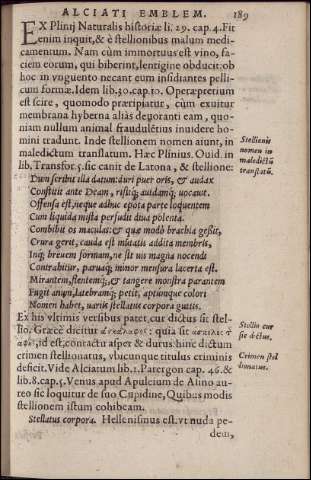 ALCIATI EMBLEM. 189
EX Plinij Naturalis historiæ li. 29. cap. 4. Fit
enim inquit, & è stellionibus malum medi-
camentum. Nam cùm immortuus est vino, fa-
ciem eorum, qui biberint, lentigine obducit: ob
hoc in vnguento necant eum insidiantes pelli-
cum formæ. Idem lib. 30. cap. 10. Operæpretium
est scire, quomodo præripiatur, cùm exuitur
membrana hyberna aliàs deuoranti eam, quo-
niam nullum animal fraudulētius inuidere ho-
mini tradunt. Inde stellionem nomen aiunt, in
maledictum translatum. Hæc Plinius. Ouid. in
lib. Transfor. 5. sic canit de Latona, & stellione:
Stellionis
nomen in
maledictū
translatū.
Dum scribit illa datum: duri puer oris, & audax
Constitit ante Deam, risitq́; auidamq́; vocauit.
Offensa est, neque adhuc epota parte loquentem
Cum liquida mista perfudit diua polenta.
Combibit os maculas: & quæ modò brachia gessit,
Crura gerit, cauda est mutatis addita membris,
Inq́; breuem formam, ne sit vis magna nocendi
Contrahitur, paruaq́; minor mensura lacerta est.
Mirantem, flentemq́;, & tangere monstra parantem
Fugit anum, latebramq́; petit, aptumque colori
Nomen habet, variis stellatus corpora guttis.
Ex his vltimis versibus patet, cur dictus sit stel-
lio. Græcè dicitur quia sit
id est, contactu asper & durus: hinc dictum
crimen stellionatus, vbicunque titulus criminis
deficit. Vide Alciatum lib. 1. Parergon cap. 46. &
lib. 8. cap. 5. Venus apud Apuleium de Alino au-
reo sic loquitur de suo Cupidine, Quibus modis
stellionem istum cohibeam.
Stellio cur
sic dictus.
Crimen stel
lionatus.
Stellatus corpora. Hellenismus est. vt nuda pe-
dem,